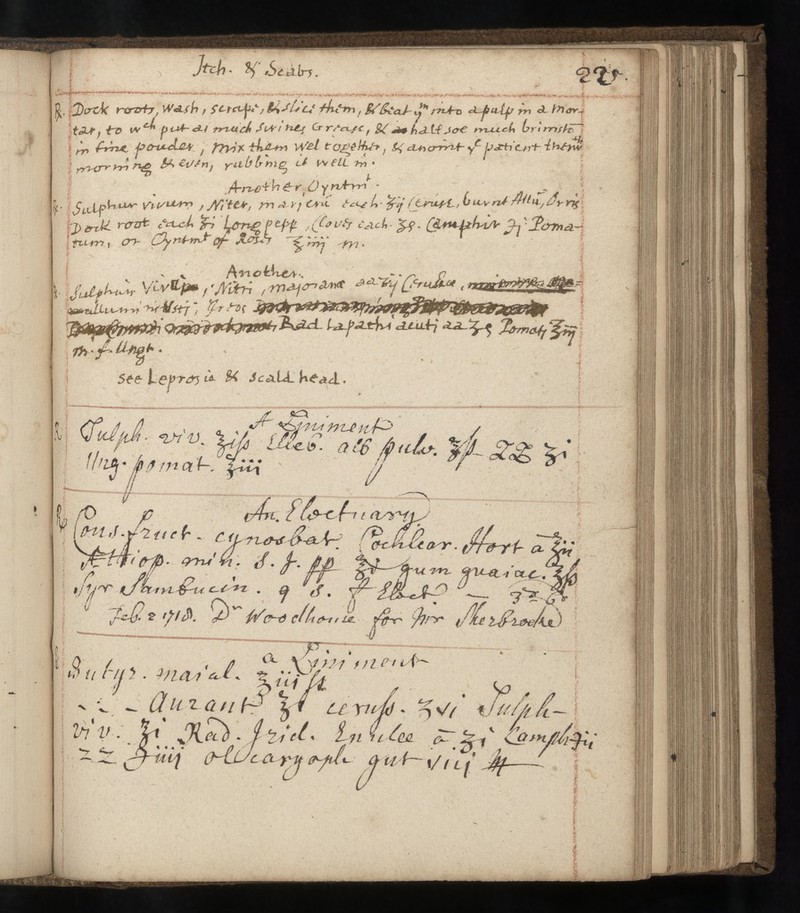 Itch. & Scabs. 225.
℞. Dock roots, wash, scrape, & slice them, & beat ym into a pulp in a mor-
tar, to wch put as much Swines Grease, & halfe soe much brimsto:
in fine pouder, mix them wel together, & anoint ye patient therwth
morning & even, rubbing it well in.
Another Oyntmt.
℞. Sulphur vivum, Niter, marjeru each ʒij Ceruse, burnt Allu, Orris
Dock root each ʒi Long pepp, Cloves each ʒs. Camphir ℈i Poma-
tum, or Oyntmt of Roses ℥iiij m.
Another.
Sulphur Vivi, Nitri, majorane aa ʒij Cerusae,
aluminis Usti, Ireos
Rad. Lapathi acuti aa ʒs Pomatj ℥iij
m. f. Ungt.
see Leprosie & Scald head.
A Liniment
℞ Sulph. viv. ℥iſs Elleb. alb pulv. ℥ſs ZZ ʒi
Ung. pomat. ℥iii
An Electuary
℞ Cons. fruct. cynosbat. Cochlear. Hort ā ℥ii
Æthiop. min. S. J. pp gum guaiac. ℥ſs
Syr Sambucin. q s. f Elect
Feb. 2 1718. Dr Woodhouse for Mr Sherbrooke
a Liniment
Butyr. maial. ℥iiiſs
- - - Aurant ceruſs. ʒvi Sulph-
viv. ℥i Rad. Irid. Enulæ ā ʒi Camph ℈ii
ZZ ʒiiij ol caryoph gut viij m